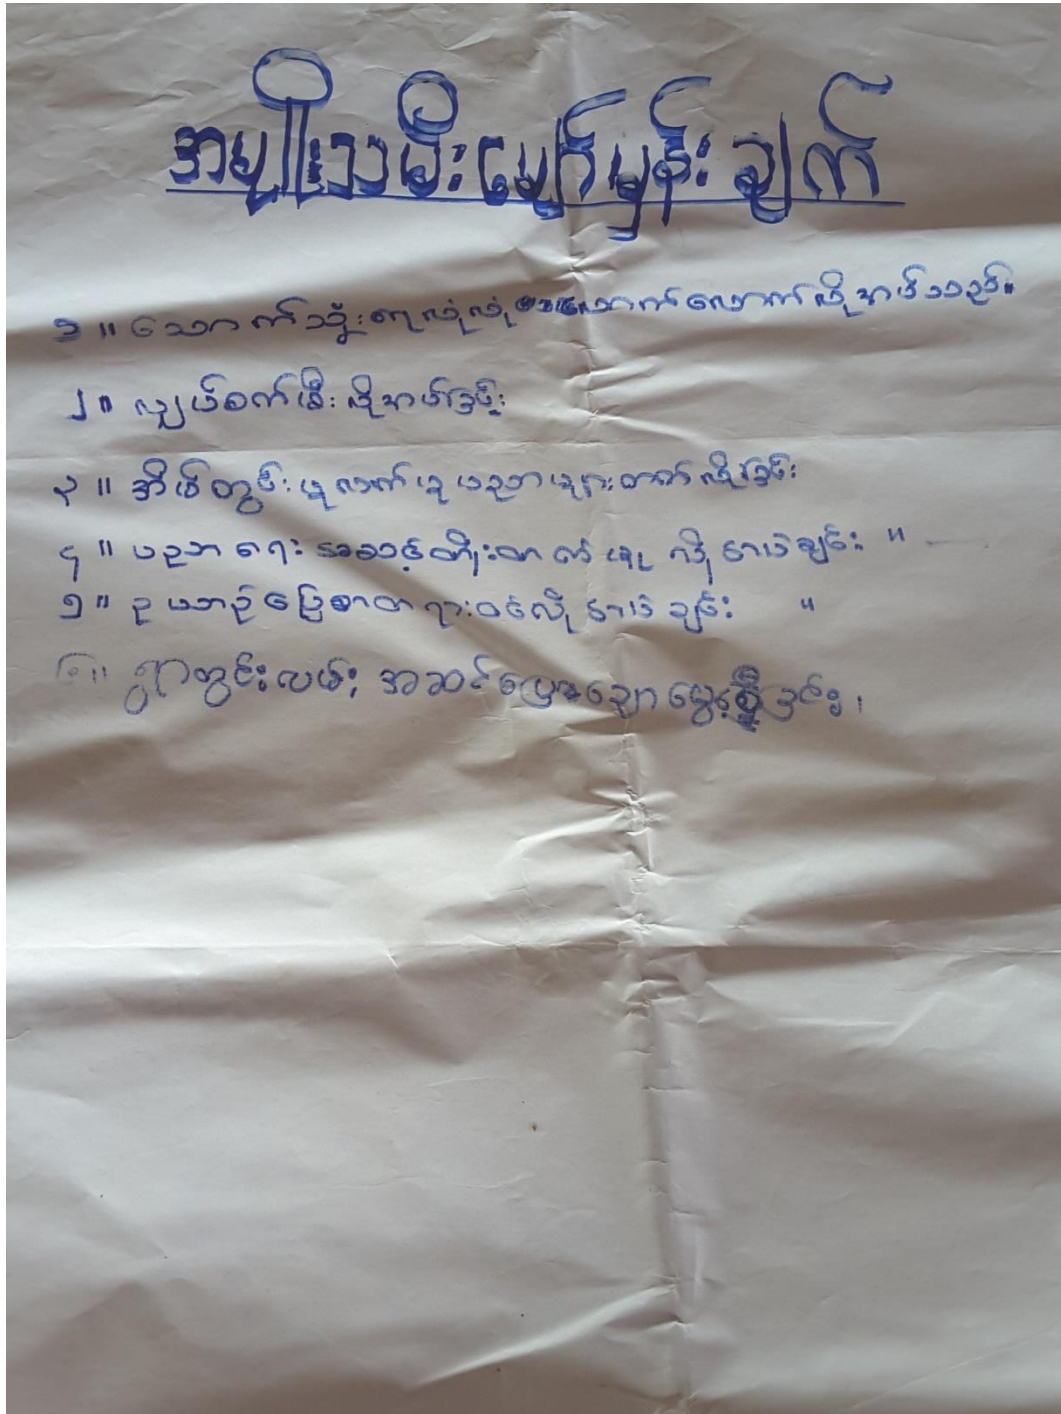 အမျိုးသမီးမျှော်မှန်းချက်
၁။ သောက်သုံးရေလုံလုံလောက်လောက်လိုအပ်သည်။
၂။ လျှပ်စစ်မီးလိုအပ်ခြင်း
၃။ အိမ်တွင်းမှု လက်မှုပညာများတတ်လိုခြင်း
၄။ ပညာရေးအဆင့်တိုးတက်မှု လိုအပ်ချင်း။
၅။ ဥပဒေ လိုအပ်ချင်း ။
ရွာတွင်းလမ်း အဆင်ပြေချောမွေ့ ခြင်း၊